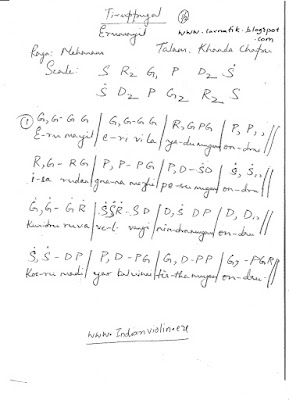 Tiruppugal
Erumayil
www.carnatik.blogspot.com
Raga: Mohanam Talam: Khanda Chapu
Scale: S R2 G, P D2 Ṡ
Ṡ D2 P G2 R2 S
① G,G- G G | G,G- G G | R,G P G | P, P,, //
E-ru mayil e-ri vila ya-du mugam on-dru
R,G - R G | P, P - P G | P,D - Ṡ D | Ṡ, Ṡ,, //
i-sa rudan gna-na mozhi pe-su mugam on-dru
Ġ,Ġ- Ġ Ṙ | Ṡ Ġ Ṙ - Ṡ D | D,Ṡ D P | D, D,, //
Kun-dru ruva ve-l vangi nin-dra mugam on-dru
Ṡ, Ṡ - D P | P, D - P G | G, D - P P | G, - P G R //
Koo-ru madi yar tal vinai tir-tha mugam on-dru-
www.Indianviolin.eu